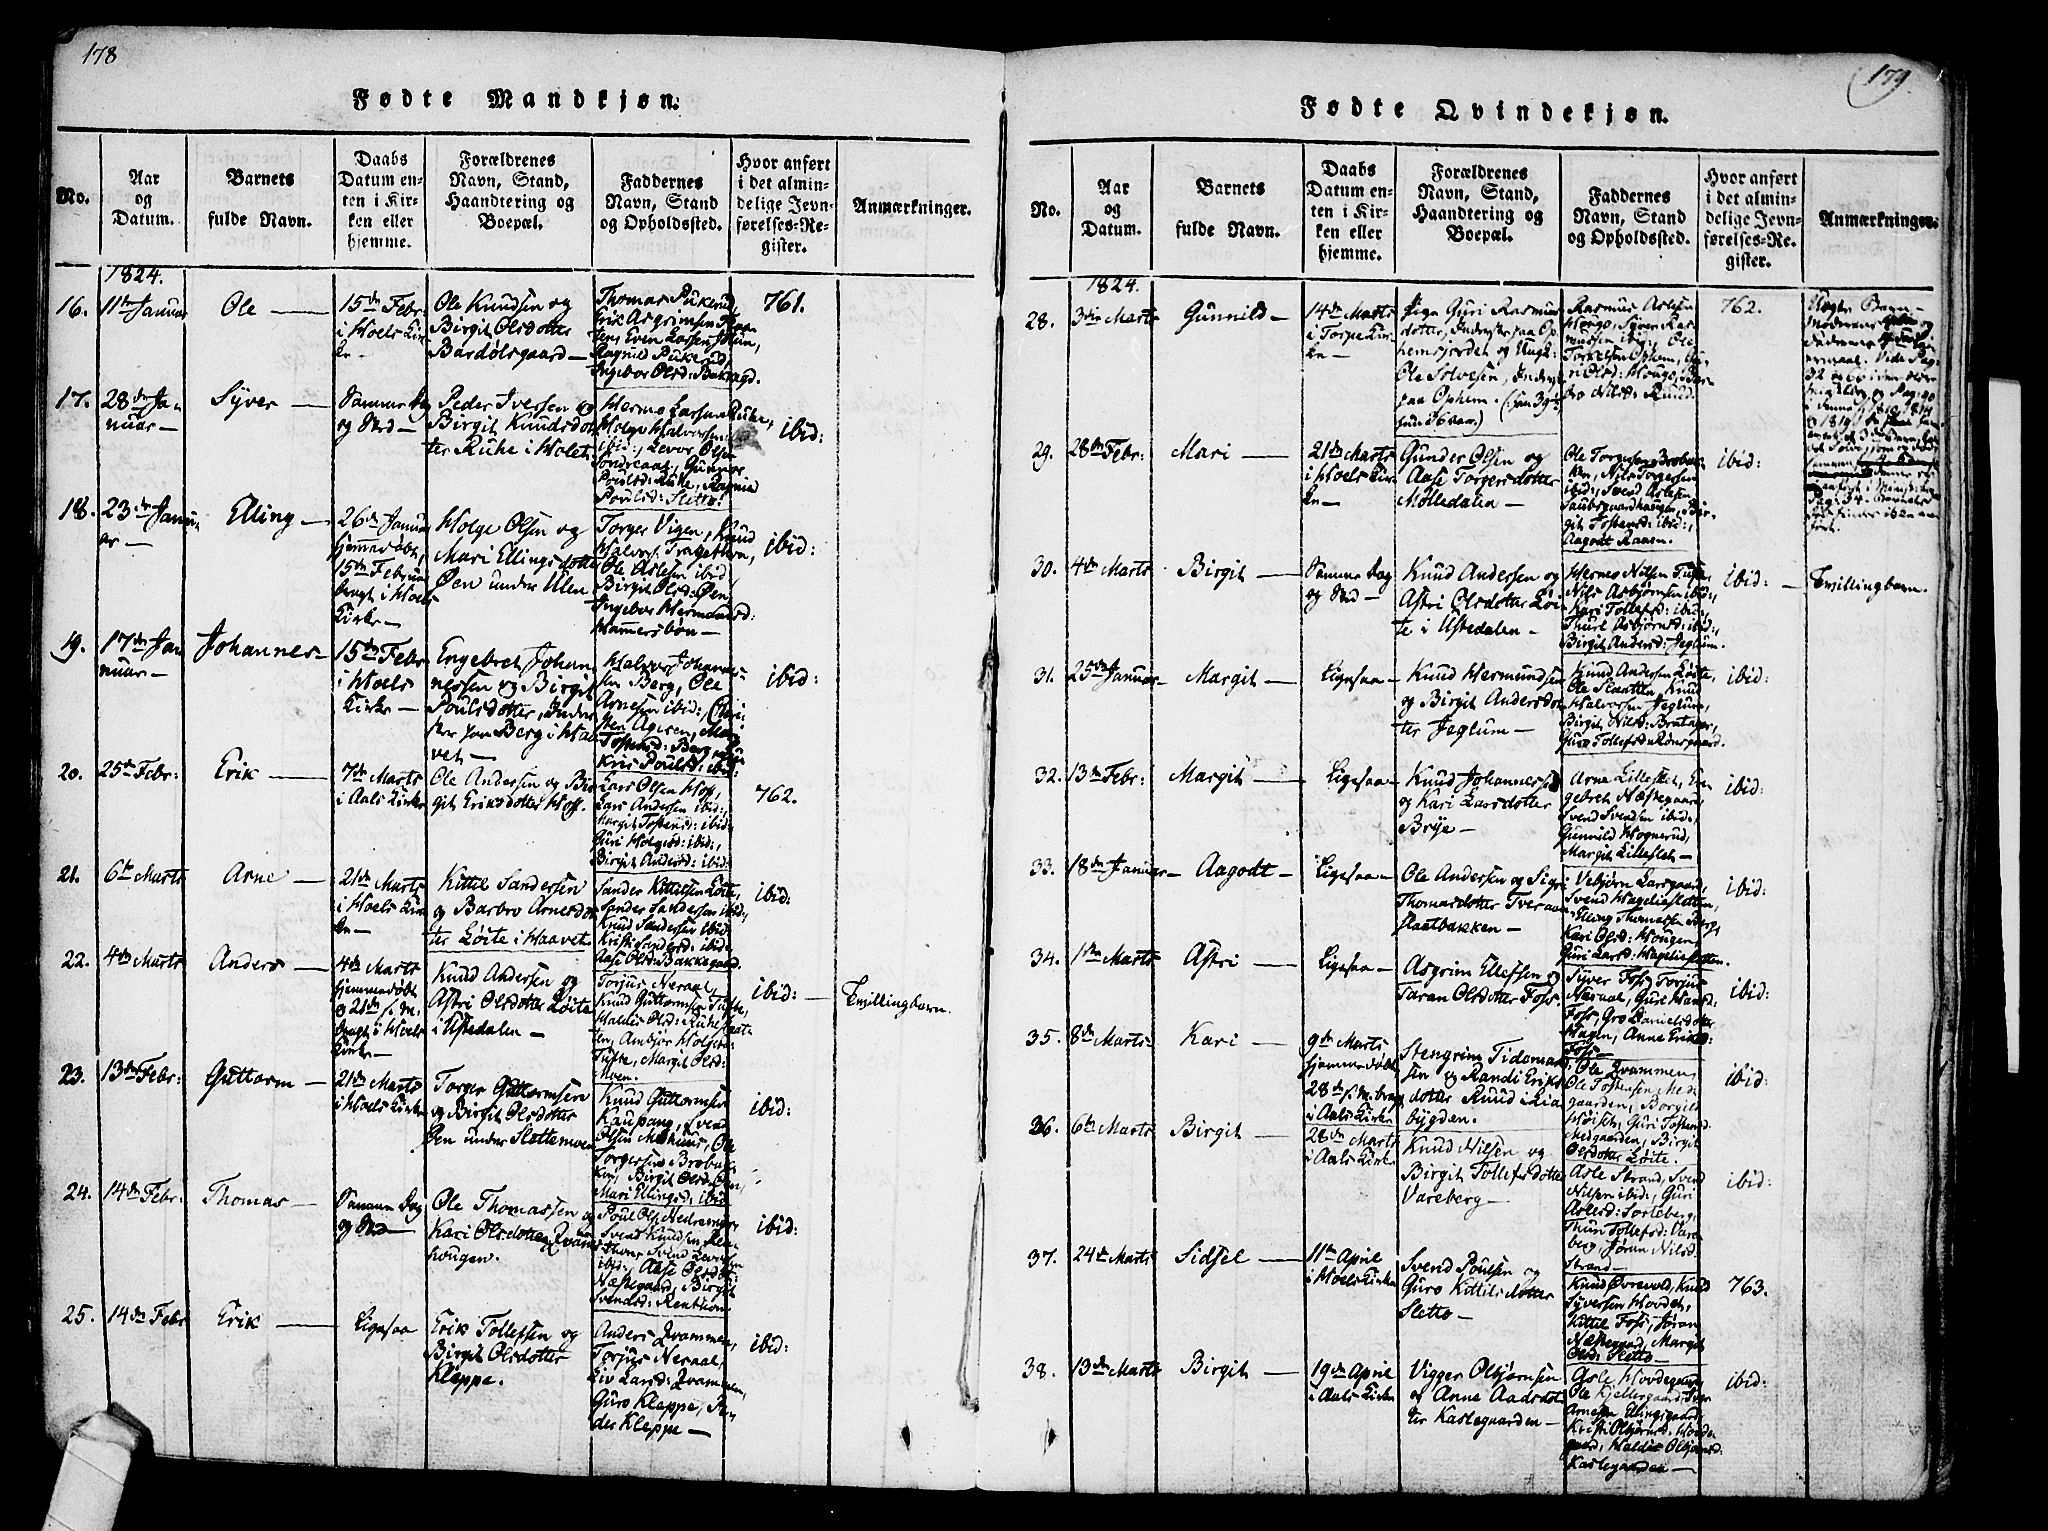 178
Fødte Mandkjøn.
No.
Aar
og
Datum.
Barnets
fulde Navn.
Daabs
Datum en-
ten i Kir-
ken eller
hjemme.
Forældrenes
Navn, Stand,
Haandtering og
Boepæl.
Faddernes
Navn, Stand
og Opholdssted.
Hvor anført
i det almin-
delige Jevn-
førelses-Re-
gister.
Anmærkninger.
1824.
16.
11te Januar
Ole
15de Febr:
i Hoels Kir-
ke
Ole Knudsen og
Birgit Olsdotter
Bardølsgaard
Thomas Pukerud
Erik Asgrimsen
Even Larsen
Ragnild Pukerud,
Ingebor Olsd:
761.
17.
28de Ja-
nuar
Syver
Samme Dag
og Sted
Peder Iversen og
Birgit Knudsdot-
ter Ruhe i Holet
Hermo Larsen Ruhe,
Holge Halvorsen
ibid:, Levor Olsen
Sondreaal, Gunnor
Poulsd: Ruhe, Ragnild
Poulsd: Sletto.
ibid:
18.
23de Janu-
ar
Elling
26de Januar
hjemmedøbt,
15de Februar
bragt i Hoels
Kirke
Holge Olsen og
Mari Ellingsdotter
Øen under Ulen
Torger Vigen, Knud
Halvors: Trageton,
Ole Aslesen ibid,
Birgit Olsd: Øen,
Ingebor Hermundsd:
Hammersbøn
ibid:
19.
17de Ja-
nuar
Johannes
15de Febr
i Hoels
Kirke
Engebret Johan-
nessen og Birgit
Poulsdotter, Inder-
ster paa Berg i Haa-
vet
Halvor Johannes-
sen Berg, Ole
Arnesen ibid:,
Tostensd: Berg og
Poulsd: ibid:
ibid:
20.
25de Febr:
Erik
7de Marts
i Aals Kirke
Ole Andersen og Bir-
git Eriksdotter Hoff.
Lars Olsen Hoff,
Lars Andersen ibid:
Margit Tostensd: ibid:
Guri Holgesd: ibid:,
Birgit Andersd: ibid:
762.
21.
6te Marts
Arne
21de Marts
i Hoels Kir-
ke
Kittil Sandersen
og Barbro Arnesdot-
ter Løite i Haavet
Sander Kittilsen Løite,
Sander Sandersen ibid:,
Knud Sandersen ibid
Kristi Sandersd: ibid:,
Aase Olsd: Bakkegaard.
ibid:
22.
4de Marts
Anders
4de Marts
hjemmedøbt
og 21de s. m.
bragt i Hoels
Kirke
Knud Andersen og
Astri Olsdotter Løite
i Ustedalen
Torjus Neraal,
Knud Guttormsen Tufte,
Haldis Olsd: Ruheslaat-
ten, Ambjør Holjesd:
Tufte, Margit Olsd:
Moen.
ibid:
Tvillingbarn.
23.
13de Febr:
Guttorm
21de Marts
i Hoels Kirke
Torger Guttormsen
og Birgit Olsdotter
Øen under Slettemoen
Knud Guttormsen
Kaupang, Svend
Olsen Moehuus, Ole
Torgersen Brobak-
ken, Birgit Olsd: Øen,
Mari Ellingsd: ibid
ibid:
24.
14de Febr:
Thomas
Samme Dag
og Sted
Ole Thomassen og
Kari Olsdotter Qvamms-
hougen.
Svend Knudsen
Svend Levorsen
ibid:, Aase Olsd:
Næssegaard, Birgit
Svendsd:
ibid:
25.
14de Febr
Erik
Ligesaa
Erik Tollefsen og
Birgit Olsdotter
Kleppe.
Anders Qvammen,
Torjus Neraal,
Liv Larsd: Qvammen,
Guro Kleppe, Pe-
der Kleppe
ibid:
179
Fødte Qvindekjøn.
No.
Aar
og
Datum.
Barnets
fulde Navn.
Daabs
Datum en-
ten i Kir-
ken eller
hjemme.
Forældrenes
Navn, Stand,
Haandtering og
Boepæl.
Faddernes
Navn, Stand
og Opholdssted.
Hvor anført
i det almin-
delige Jevn-
førelses-Re-
gister.
Anmærkninger.
1824.
28.
3die Marts
Gunnild
14de Marts
i Torpe Kir-
ke
Pige Guri Rasmus-
dotter, Inderster paa Op-
hemsjordet og Ungk:
Ole Solvesen, Inderst
paa Ophem.
Rasmus Aslesen
Hougo, Syver Ras-
mussen ibid:, Ole
Torkelsen Ophem, Gu-
ri Olsd: Hougo, Bar-
bro Nilsd: Ruud.
762.
Uægte Barn
29.
28de Febr:
Mari
21de Marts
i Hoels Kir-
ke
Gunder Olsen og
Aase Torgersdotter
Mølledalen
Ole Torgersen Brobak-
ken, Nils Torgersen
ibid:, Svend Aslesen
Saubsgaardhaugen, Bir-
git Tostensd: ibid:,
Aagodt Raaen.
ibid:
30.
4de Marts
Birgit
Samme Dag
og Sted
Knud Andersen og
Astri Olsdotter Løi-
te i Ustedalen
Hermo Nilsen Tufte,
Nils Asbjørnsen ibid:,
Kari Tollefsd: ibid:,
Thuri Asbjørnsd: ibid:,
Birgit Andersd: Jeglum.
ibid:
Tvillingbarn.
31.
25de Januar
Margit
Ligesaa
Knud Hermundsen
og Birgit Andersdot-
ter Jeglum
Knud Andersen Løite,
Ole Slaatten, Knud
Halvorsen Jeglum,
Birgit Nilsd: Bratager,
Guro Tollefsd:
ibid:
32.
13de Febr:
Margit
Ligesaa
Knud Johannessen
og Kari Larsdotter
Brye
Arne Lilleslet, En-
gebret Næssegaard,
Svend Svendsen ibid:,
Gunnild Hognerud,
Margit Lilleslet
ibid:
33.
18de Januar
Aagodt
Ligesaa
Ole Andersen og Sigri
Thomasdotter Tveraan-
slaatbakken
Vebjørn Larsgaard,
Svend Hagelieslotten,
Elling Thomassen Berg,
Kari Olsd: Hougen,
Guri Larsd: Hagelieslotten.
ibid:
34.
1ste Marts
Astri
Ligesaa
Asgrim Ellefsen og
Taran Olsdotter Foss.
Syver Foss, Torjus
Neraal, Guri Hansd:
Foss, Gro Danielsdotter
Hagen, Anne Eriksd:
Foss
ibid:
35.
8de Marts
Kari
9de Marts
hjemmedøbt
28de s. m. bragt
i Aals Kirke
Stengrim Tidemand-
sen og Randi Eriks-
dotter Ruud i Lia-
bygden.
Ole Qvammen,
Ole Tostensen Med-
gaarden, Borgild
Høisett, Guri Tostensd:
Medgaarden, Birgit
Olsdotter Løite.
ibid:
36.
6te Marts
Birgit
28de Marts
i Aals Kirke
Knud Nilsen og
Birgit Tollefsdotter
Vareberg
Asle Strand, Svend
Nilsen ibid:, Guri
Aslesd: Sorteberg,
Thuri Tollefsd: Vare-
berg, Jøran Nilsd:
Strand
ibid:
37.
24de Marts
Sidsel
11te April
i Hoels Kirke
Svend Poulsen og
Guro Kittilsdotter
Sletto
Knud Øvrevold, Knud
Syversen Hovdet,
Kittil Foss, Jøran
Næssegaard, Margit
Olsd: Sletto
763.
38.
13de Marts
Birgit
19de April
i Aals Kirke
Vigger Olbjørnsen
og Anne Aadsdot-
ter Kaslegaarden
Asle Hovdegaard,
Ole Kjellergaard, Iver
Arnesen Ellingsgaard,
Kristi Olbjørnsd: Hovde-
gaard, Haldis Olbjørnsd:
Kaslegaarden
ibid: